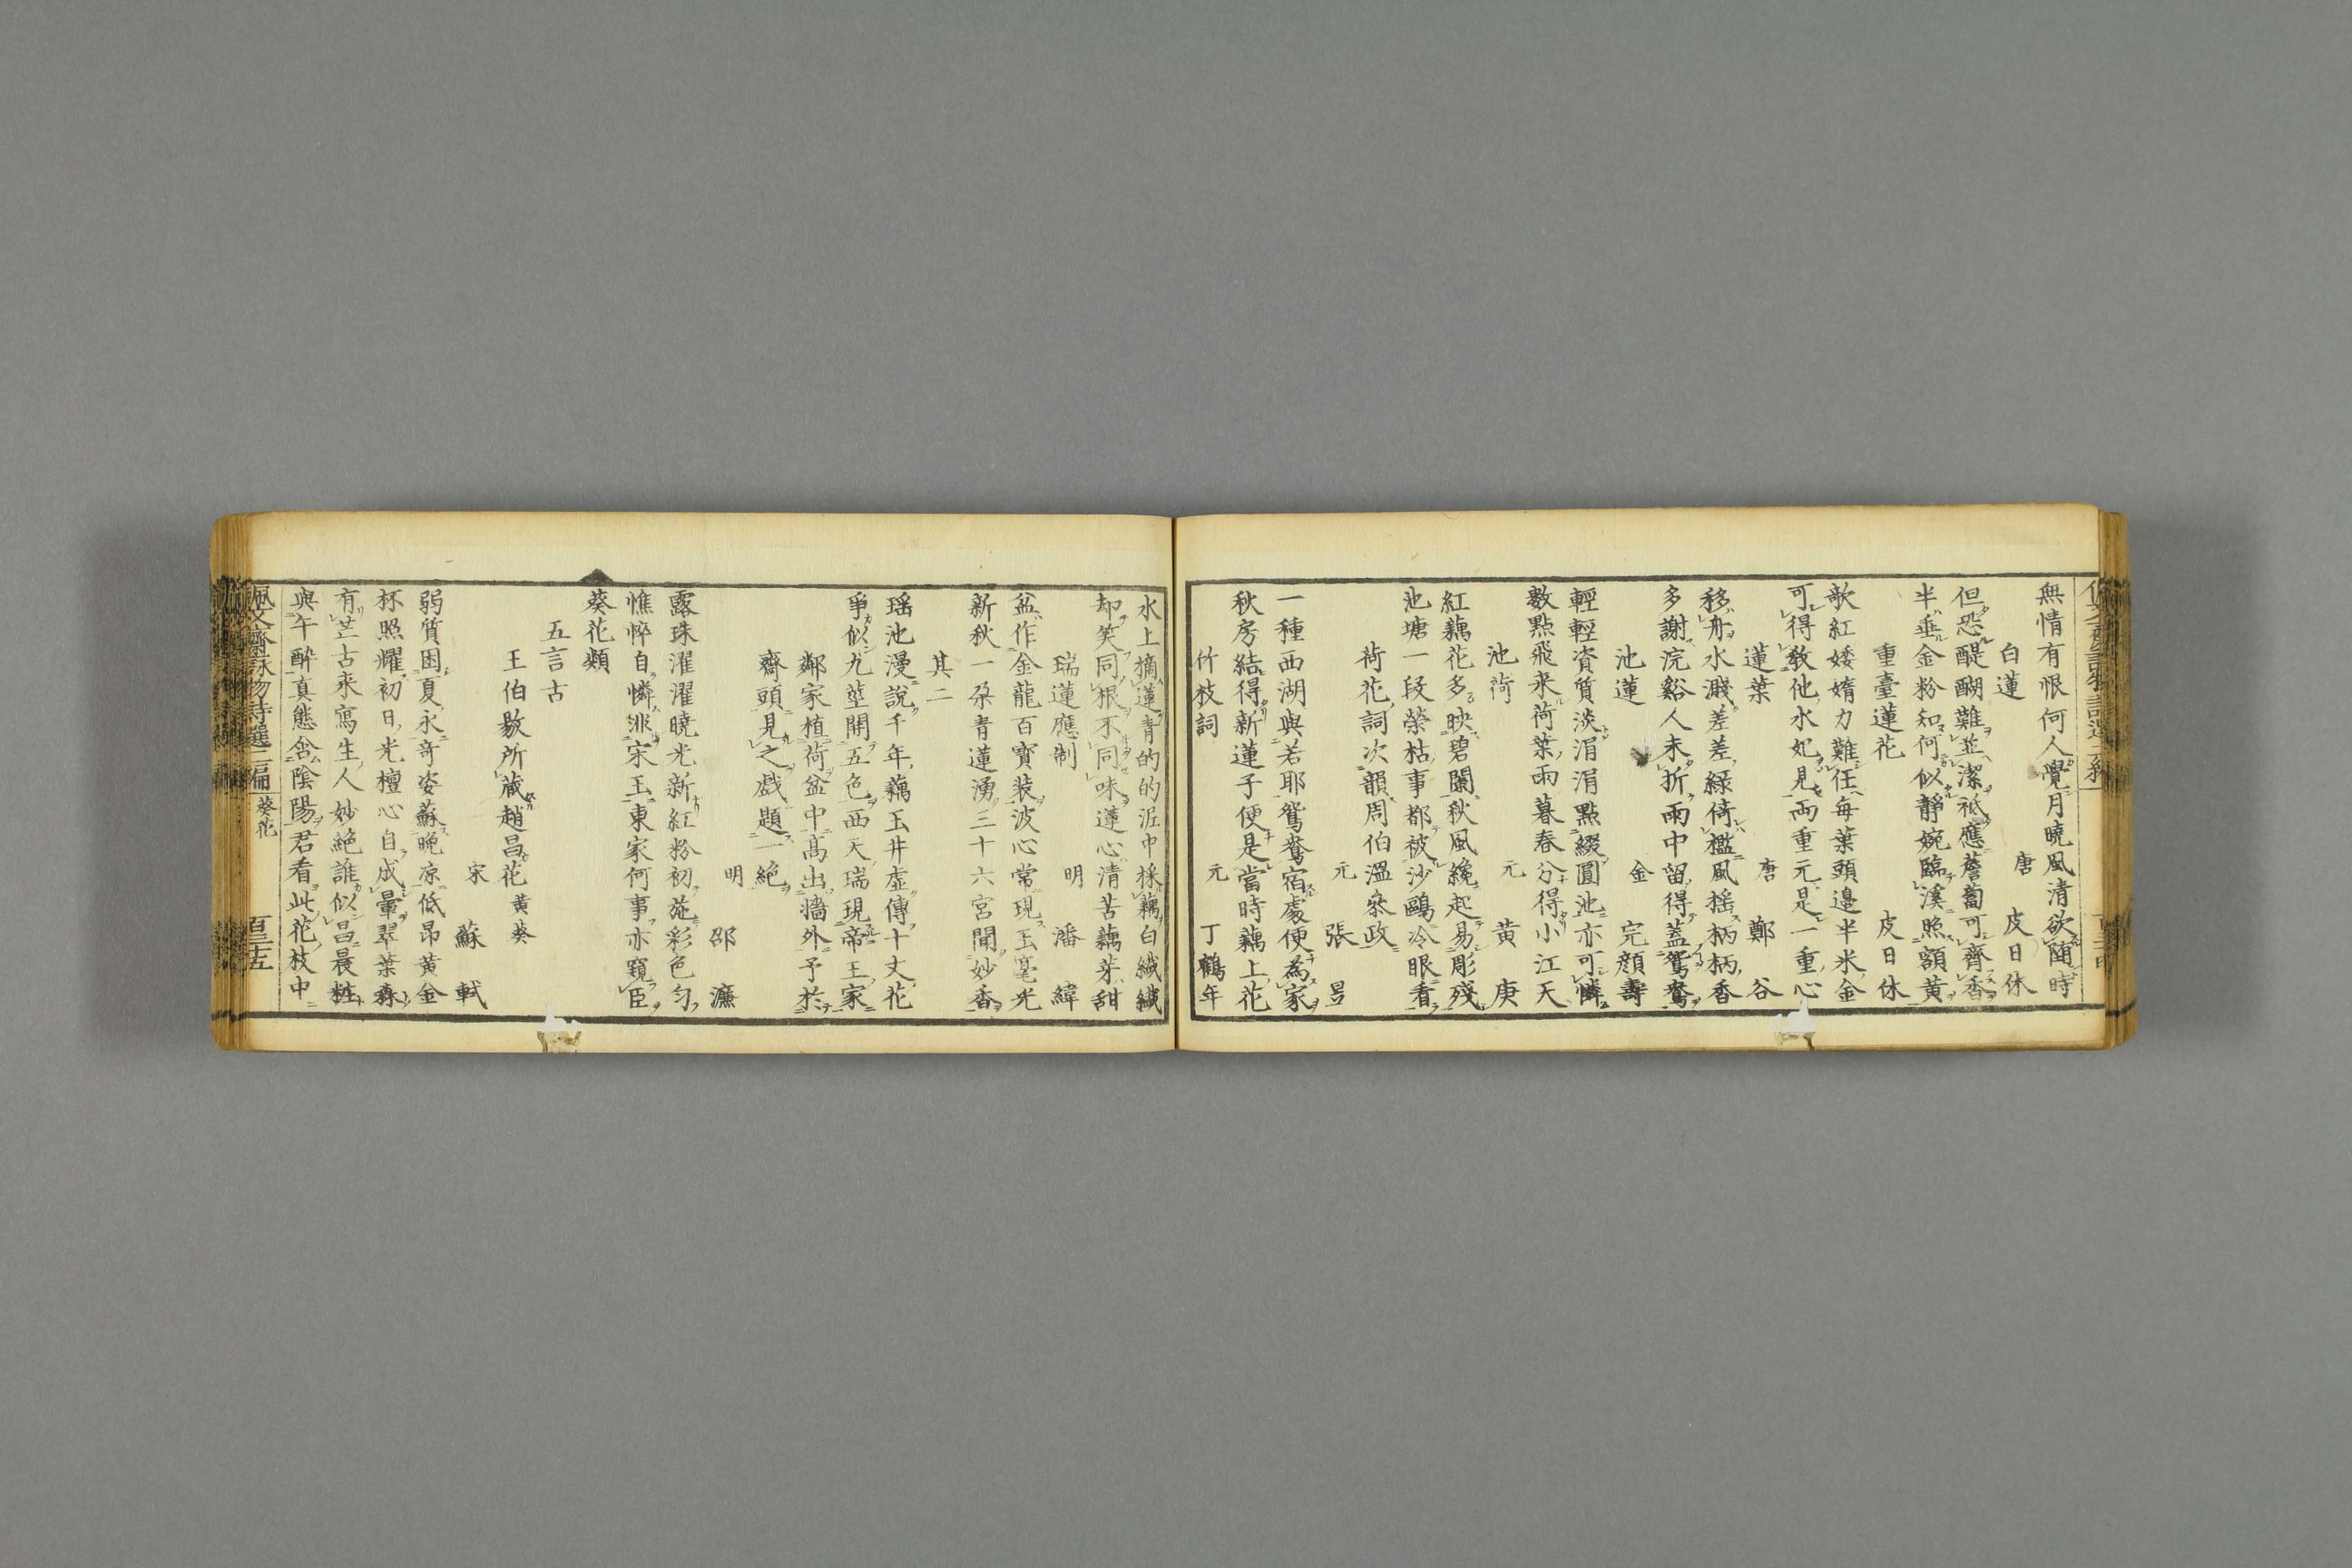 無情有恨何人覺月曉風清欲隨時
白蓮　唐　皮日休
但恐醍醐難並潔祇應薝蔔可齊香
半垂金粉知何似靜婉臨溪照額黃
重臺蓮花　皮日休
欹紅婑媠力難任每葉頭邊半米金
可得教他水妃見兩重元是一重心
蓮葉　唐　鄭谷
移舟水濺差差綠倚檻風搖柄柄香
多謝浣谿人未折雨中留得蓋鴛鴦
池蓮　金　完顏壽
輕輕資質淡涓涓點綴圓池亦可憐
數點飛來荷葉雨暮春分得小江天
池荷　元　黃庚
紅藕花多映碧闌秋風纔起易彫殘
池塘一段榮枯事都被沙鷗冷眼看
荷花詞次韻周伯溫叅政
元　張昱
一種西湖與若耶鴛鴦宿處便為家
秋房結得新蓮子便是當時藕上花
竹枝詞　元　丁鶴年
水上摘蓮青的的泥中採藕白纖纖
却笑同根不同味蓮心清苦藕芽甜
瑞蓮應制　明　潘緯
盆作金龍百寶装波心常現玉毫光
新秋一朶青蓮湧三十六宮聞妙香
其二
瑶池漫說千年藕玉井虛傳十丈花
爭似九莖開五色西天瑞現帝王家
鄰家植荷盆中高出牆外予於
齋頭見之戲題一絕
明　邵濂
露珠濯濯曉光新紅粉初施彩色勻
憔悴自憐非宋玉東家何事亦窺臣
葵花類
五言古
王伯敭所藏趙昌花　黃葵
宋　蘇軾
弱質困夏永奇姿蘇晚凉低昻黃金
杯照耀初日光檀心自成暈翠葉森
有芒古來寫生人妙絕誰似昌晨粧
與午醉真態含陰陽君看此花枝中
佩文齋詠物詩選二編　葵花　百三十五